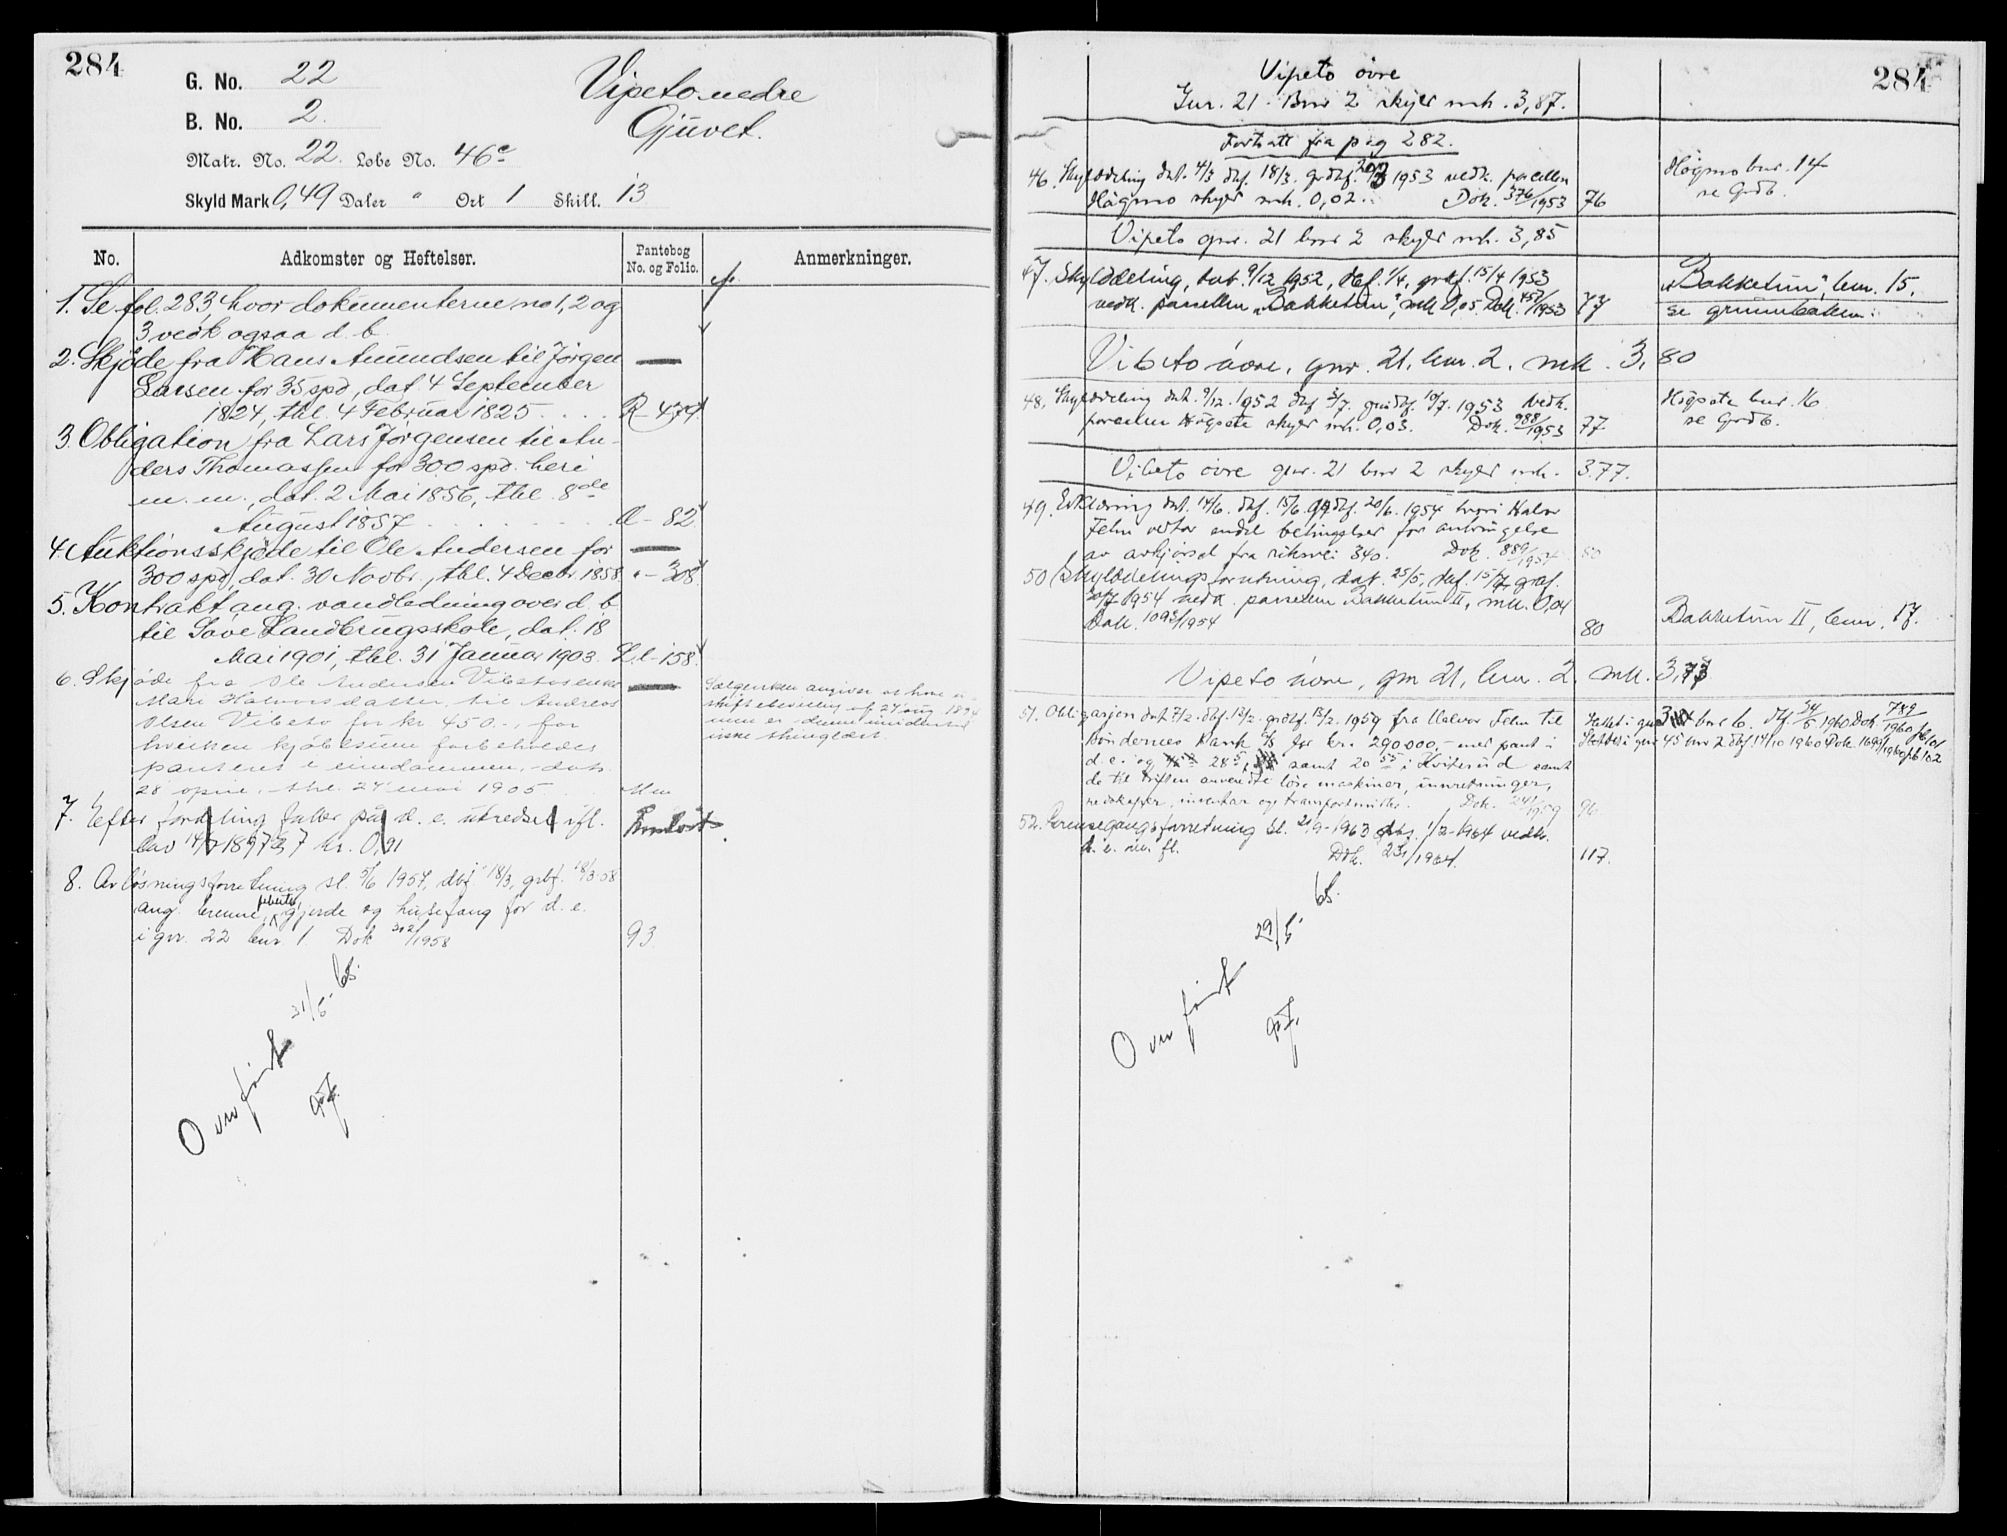 284
G. No. 22
B. No. 2.
Matr. No. 22. Løbe No. 46c
Skyld Mark 0,49 Daler " Ort 1 Skill. 13
Vipeto nedre
Gjuvet.
No. Adkomster og Heftelser. Pantebog No. og Folio. Anmerkninger.
1. Se fol. 283, hvor dokumenterne no 1, 2 og
3 vedk ogsaa d. b.
2. Skjøde fra Hans Amundsen til Jørgen
Larsen for 35 spd, dat 4 September
1824, thl. 4 Februar 1825 . . . . R - 479.
3. Obligation fra Lars Jørgensen til An-
ders Thomassen for 300 spd. heri
m. m., dat. 2 Mai 1856, thl. 8de
August 1857 . . . . . . . a - 82
4. Auktionsskjøde til Ole Andersen for
300 spd, dat. 30 Novbr., thl. 4 Decbr. 1858. " - 308.
5. Kontrakt ang. vandledning over d. b.
til Søve Landbrugsskole, dat. 18
Mai 1901, thl. 31 Januar 1903. L.l - 158.
6. Skjøde fra Ole Andersen
Mari Halvorsdatter til Andreas
Olsen Vibeto for kr 450.-, for
hvilken kjøbesum forbeholdes
panteret i eiendommen, - dat.
28 april, thl. 24 mai 1905
7. Efter fordeling falder på d. e. utredsel ifl.
lav 14/7 1897 § 7 kr. 0,91
8. Avløsningsforretning sl. 5/6 1957, dbf 18/3, grbf. 18/3 58
ang. brenne, febeite, gjerde og husefang for d. e.
i gnr. 22 bnr 1. Dok 302/1958 93.
Overført 31/5 - 65.
284
Vipeto øvre
Gnr. 21 - Bnr 2 skyld mk. 3,87.
Fortsatt fra pag 282.
46. Skylddeling dat. 4/3 dbf. 18/3. grdbf. 1953 vedk. parcellen
Høgmo skyld mk. 0,02. Dok. 376/1953 76
Høgmo bnr. 14
se Grdb.
Vipeto gnr. 21 bnr 2 skyld mk. 3,85
47. Skylddeling, dat. 9/12 1952, dbf. 1/4, grbf. 15/4 1953
vedk. parsellen "Bakketun", mk 0,05. Dok. 451/1953 77
"Bakketun", bnr. 15.
se grunnboken.
Vibeto øvre, gnr. 21, bnr. 2, mk. 3,80
48. Skylddeling dat. 9/12. 1952 dbf 3/7. grdbf. 10/7. 1953 vedk.
parcellen Høgsete skyld mk. 0,03. Dok. 988/1953 77
Høgsete bnr. 16
se Grdb.
Vibeto øvre gnr. 21 bnr 2 skyld mk. 3.77.
49. Erklæring dat. 14/6. dbf. 15/6. grdbf. 20/6. 1954 hvori Halvor
Fehn vedtar endel betingelser for anbringelse
av avkjørsel fra riksvei 340. Dok. 880/1954 80
50 Skylddelingsforretning, dat. 25/5, dbf. 15/7, grbf.
20/7 1954 vedk. parsellen Bakketun II, mk. 0,04
Dok. 1092/1954 80
Bakketun II, bnr. 17.
Vipeto øvre, gnr 21, bnr. 2, mk. 3,73
51. Obligasjon dat. 7/2. dbf. 13/2. grdbf. 13/2. 1959 fra Halvor Fehn til
Bøndernes Bank A/S for kr. 290.000,- med pant i
d. e. og samt 20 i Kviteseid samt
de til driften anvendte løse maskiner, innretninger,
redskaper, inventar og transportmidler. Dok. 241/1959 96.
52. Grensegangsforretning sl. 21/9 - 1963 dbf. 1/2 - 1964 vedk.
d. e. m. fl. Dok. 231/1964. 117.
Overført 29/5 - 65.